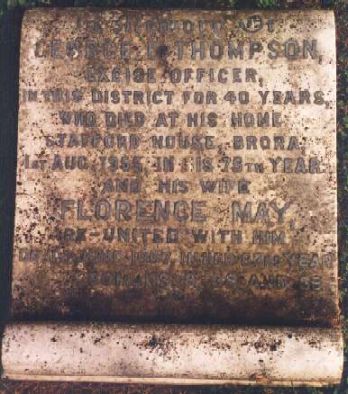 IN MEMORY OF
GEORGE L. THOMPSON,
EXCISE OFFICER,
IN THIS DISTRICT FOR 40 YEARS,
WHO DIED AT HIS HOME
STAFFORD HOUSE, BRORA,
1ST AUG. 1955, IN HIS 79TH YEAR.
AND HIS WIFE
FLORENCE MAY,
RE-UNITED WITH HIM
IN HER YEAR
ROMANS